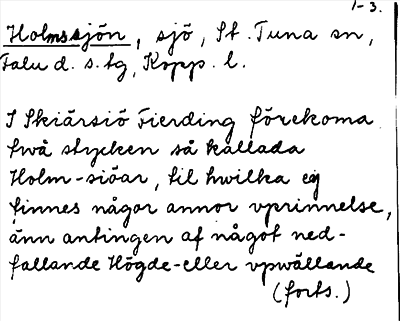 1-3.
Holmssjön, sjö, St. Tuna sn,
Falu d. s. tg, Kopp. l.
I Skiärsiö Fierding förekoma
twå stycken så kallada
Holm-siöar, til hwilka eij
finnes någor annor vprinnelse,
änn antingen af något ned-
fallande Högde-eller vpwällande
(forts.)